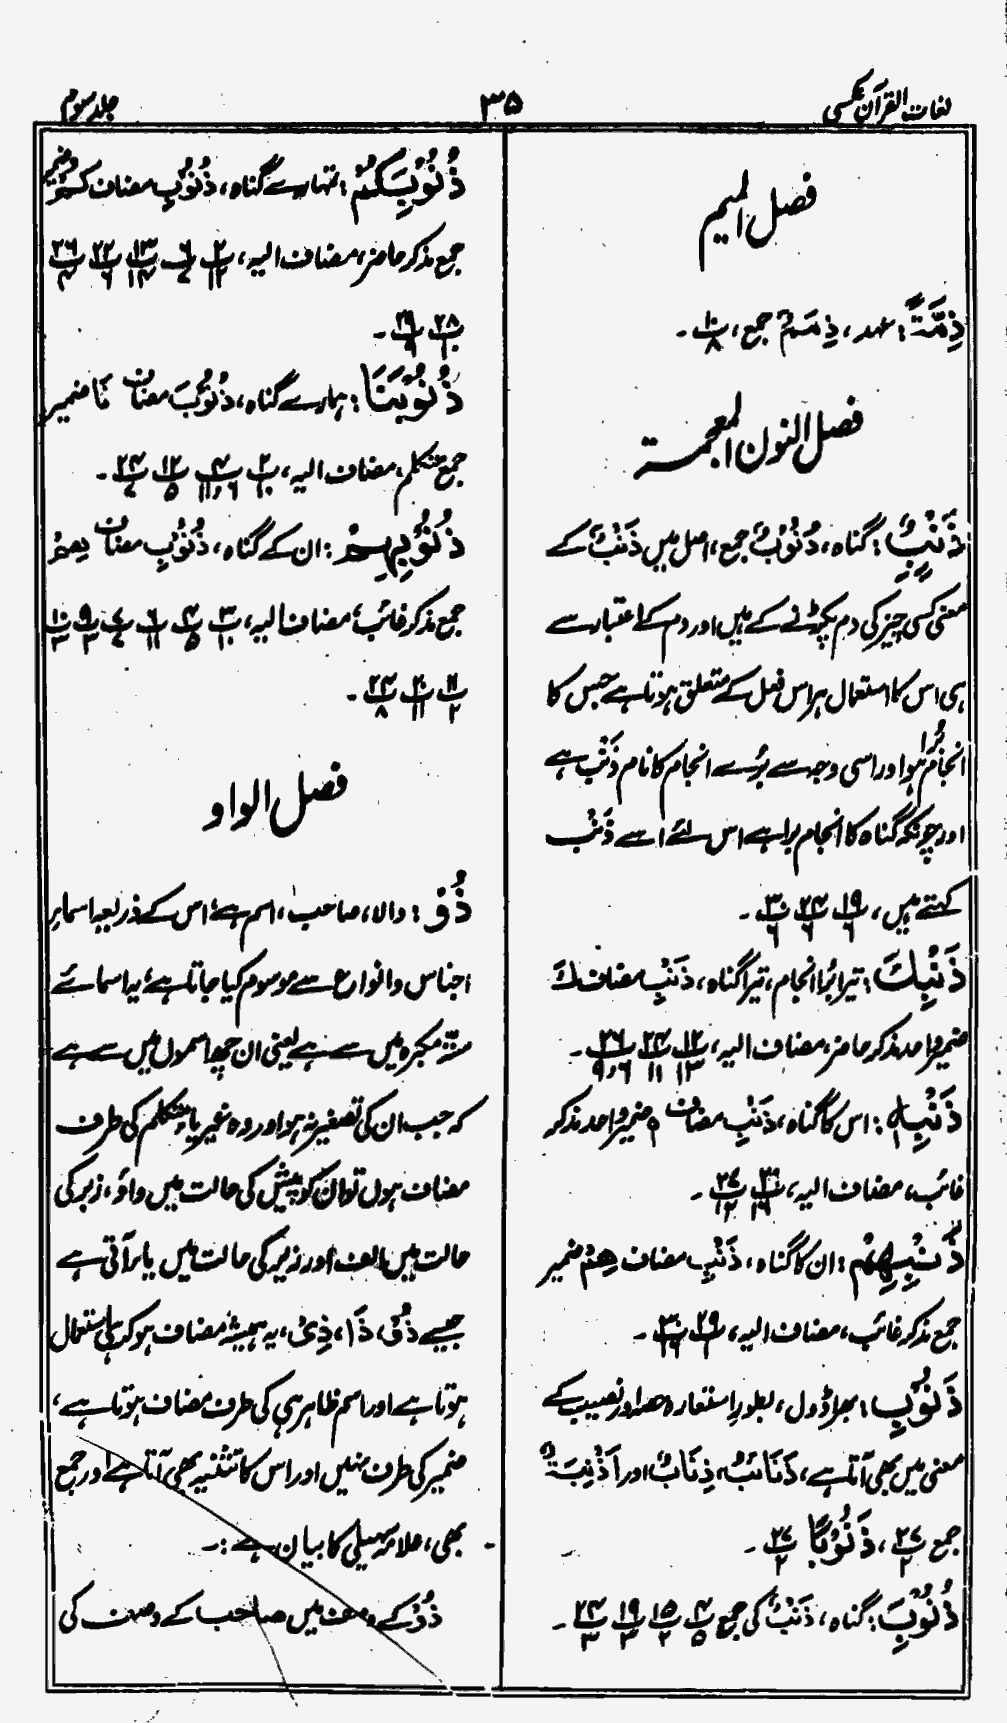 لغات القرآن عکسی
۳۵
جلد سوم
فصل المیم
ذِمَّةً: عہد، ذِمَمٌ جمع، پ۱۰/۸۔
فصل النون المعجمۃ
ذَنْبٌ: گناہ، ذُنُوْبٌ جمع، اصل میں ذَنْبٌ کے
معنی کسی چیز کی دم پکڑنے کے ہیں اور دم کے اعتبار سے
ہی اس کا استعمال ہر اس فعل کے متعلق ہوتا ہے جس کا
انجام بُرا ہو اور اسی وجہ سے بُرے انجام کا نام ذَنْبٌ ہے
اور چونکہ گناہ کا انجام برا ہے اس لئے اسے ذَنْب
کہتے ہیں، پ۱۹/۶ پ۲۴/۶ پ۳۰/۶۔
ذَنْبِكَ: تیرا بُرا انجام، تیرا گناہ، ذَنْبِ مضاف كَ
ضمیر واحد مذکر حاضر مضاف الیہ، پ۱۲/۱۳ پ۲۴/۱۱ پ۲۶/۶و۹۔
ذَنْبِهٖ: اس کا گناہ، ذَنْبِ مضاف ہ ضمیر واحد مذکر
غائب، مضاف الیہ، پ۲۰/۱۶ پ۲۷/۱۲۔
ذَنْبِهِمْ: ان کا گناہ، ذَنْبِ مضاف هِمْ ضمیر
جمع مذکر غائب، مضاف الیہ، پ۲۹/۱ پ۳۰/۱۶۔
ذَنُوْبِ: بھرا ڈول، بطور استعارہ حصہ اور نصیب کے
معنی میں بھی آتا ہے، ذَنَائبُ، ذِنَابٌ اور اَذْنِبَةٌ
جمع پ۲۷/۲، ذَنُوْبًا پ۲۷/۲۔
ذُنُوْبَ: گناہ، ذَنْبٌ کی جمع پ۴/۵ پ۱۵/۲ پ۱۹/۳ پ۲۴/۳۔
ذُنُوْبِكُمْ: تمہارے گناہ، ذُنُوْبِ مضاف كُمْ ضمیر
جمع مذکر حاضر، مضاف الیہ، پ۳/۱۲ پ۶/۷ پ۱۳/۱۴ پ۲۲/۶ پ۲۶/۴
پ۲۸/۱۰ پ۲۹/۹۔
ذُنُوْبَنَا: ہمارے گناہ، ذُنُوْبَ مضاف نَا ضمیر
جمع متکلم، مضاف الیہ، پ۳/۱۰ پ۴/۶و۱۱ پ۱۲/۵ پ۲۴/۷۔
ذُنُوْبِهِمْ: ان کے گناہ، ذُنُوْبِ مضاف هِمْ
جمع مذکر غائب، مضاف الیہ، پ۳/۱۰ پ۴/۵ پ۶/۱۱ پ۷/۷ پ۹/۳ پ۱۰/۳
پ۱۱/۲ پ۲۰/۱۱ پ۲۴/۸۔
فصل الواو
ذُوْ: والا، صاحب، اسم ہے، اس کے ذریعہ اسماءِ
اجناس و انواع سے موسوم کیا جاتا ہے، یہ اسمائے
ستہ مکبرہ میں سے ہے یعنی ان چھ اسموں میں سے ہے
کہ جب ان کی تصغیر نہ ہو اور وہ غیر یاء متکلم کی طرف
مضاف ہوں تو ان کو پیش کی حالت میں واؤ، زبر کی
حالت میں الف اور زیر کی حالت میں یاء آتی ہے
جیسے ذُوْ، ذَا، ذِیْ، یہ ہمیشہ مضاف ہو کر ہی استعمال
ہوتا ہے اور اسم ظاہر ہی کی طرف مضاف ہوتا ہے،
ضمیر کی طرف نہیں اور اس کا تثنیہ بھی آتا ہے اور جمع
بھی، علامہ سہیلی کا بیان ہے:۔
ذُوْ کے وصف میں صاحب کے وصف کی